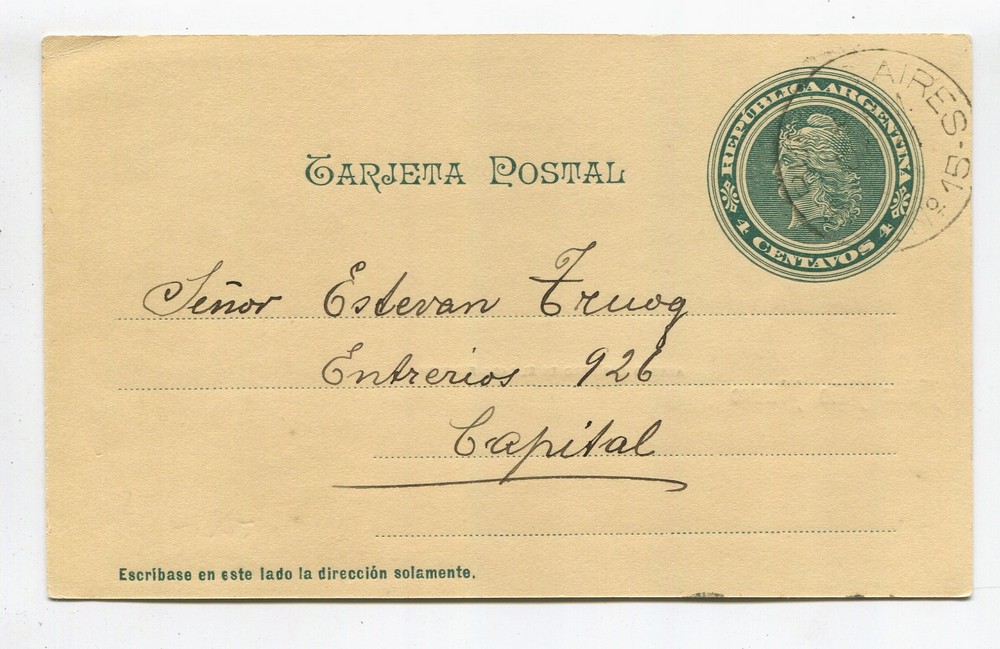 TARJETA POSTAL
REPÚBLICA ARGENTINA
4 CENTAVOS 4
AIRES
Nº 15-
Señor Estevan Truog
Entrerios 926
Capital
Escríbase en este lado la dirección solamente.